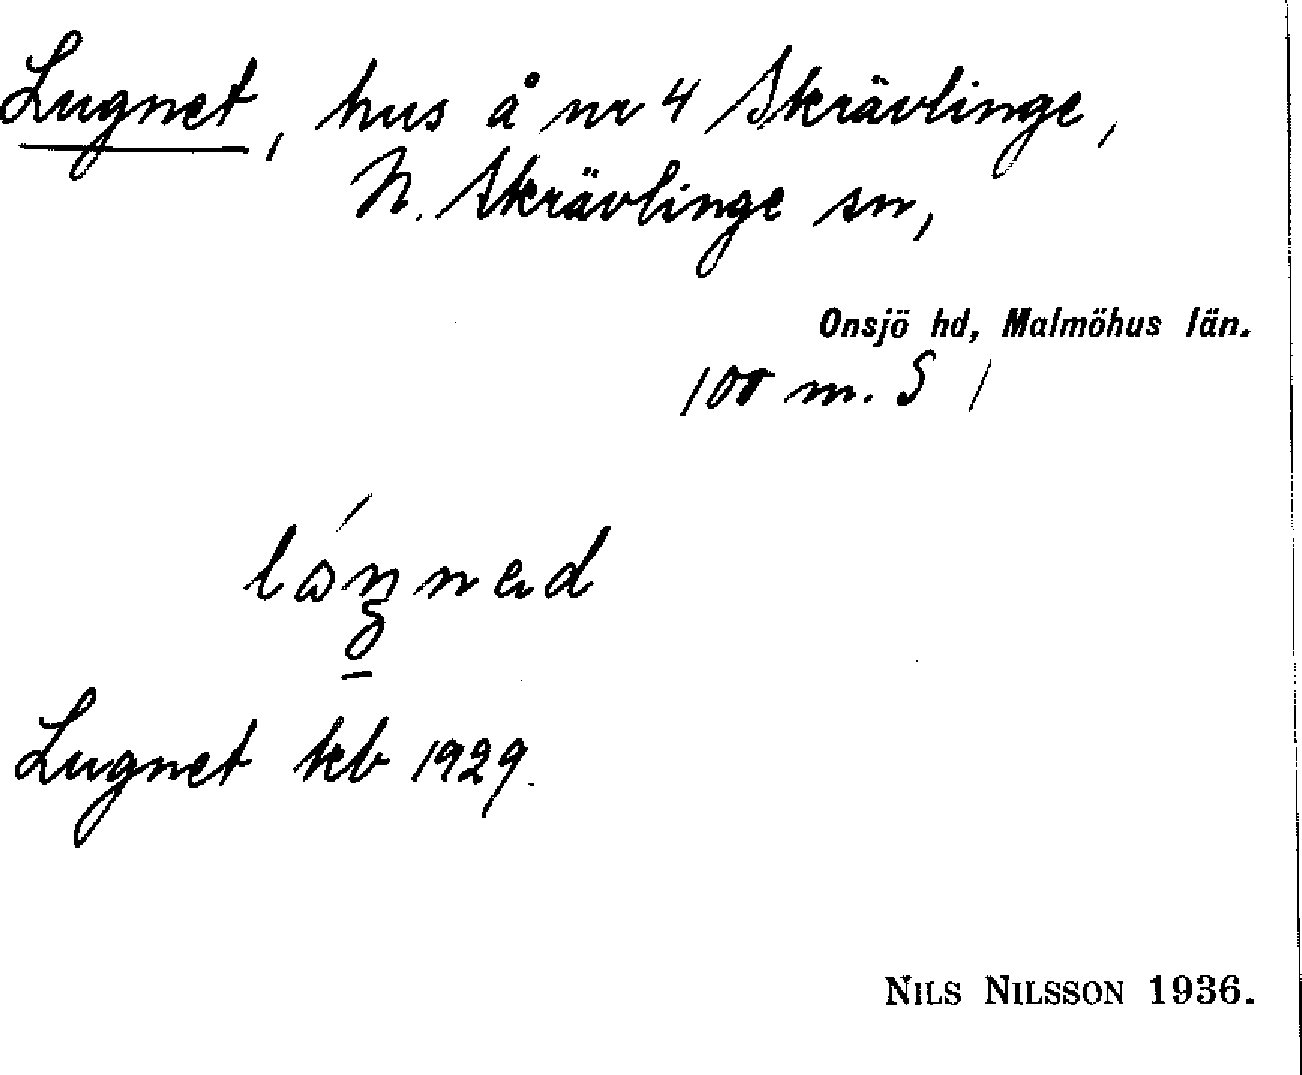 Lugnet, hus å nr 4 Skrävlinge,
N. Skrävlinge sn,
Onsjö hd, Malmöhus län.
100 m. S /
Lugnet kb 1929.
NILS NILSSON 1936.